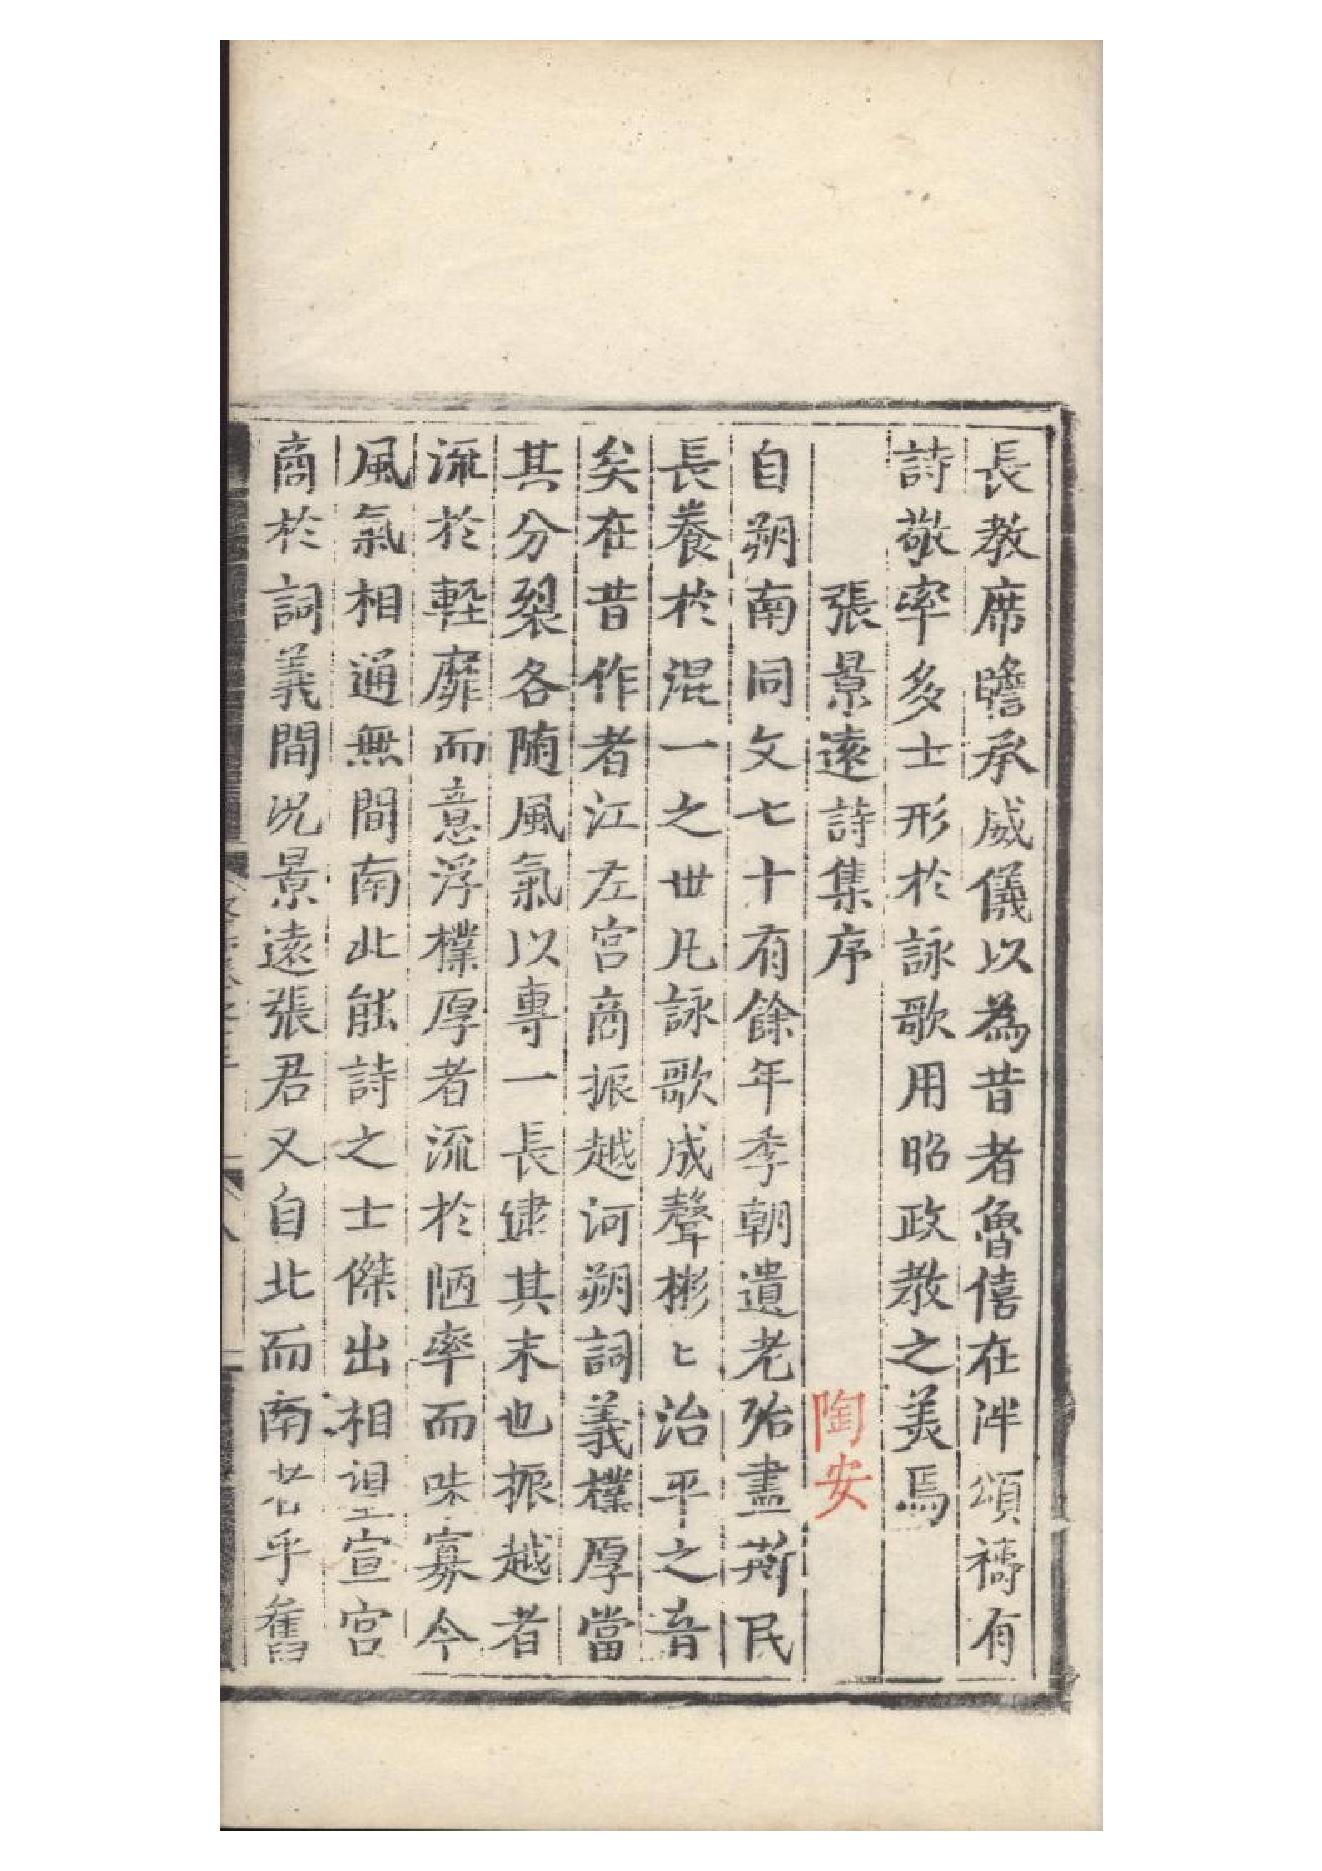 長教席瞻承威儀以為昔者魯僖在泮頌禱有
詩敬率多士形於詠歌用昭政教之美焉
張景遠詩集序
陶安
自朔南同文七十有餘年季朝遺老殆盡斯民
長養於混一之世凡詠歌成聲彬〻治平之音
矣在昔作者江左宮商振越河朔詞義樸厚當
其分裂各隨風氣以專一長逮其末也振越者
流於輕靡而意浮樸厚者流於陋率而味寡今
風氣相通無間南北能詩之士傑出相望宣宮
商於詞義間况景遠張君又自北而南若乎舊